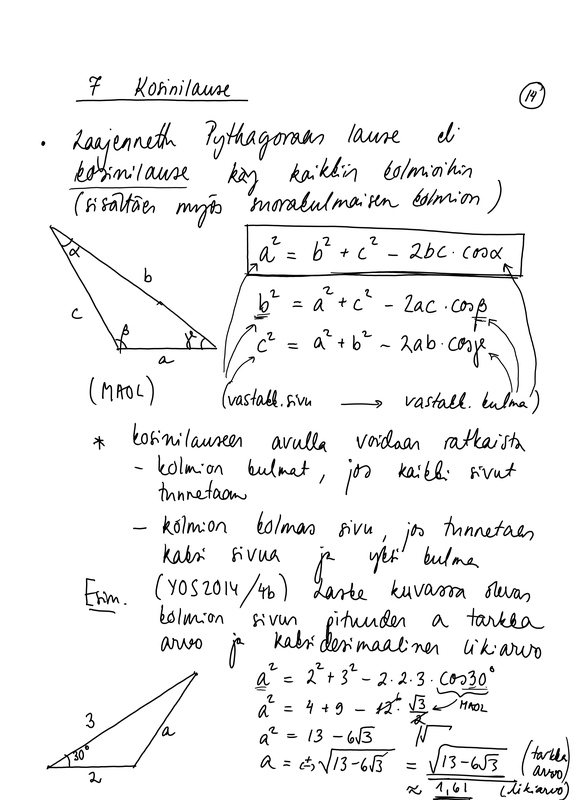 7 Kosinilause
14
• Laajennettu Pythagoraan lause eli
kosinilause käy kaikkiin kolmioihin
(sisältäen myös suorakulmaisen kolmion)
α
b
c
β
γ
a
a² = b² + c² - 2bc · cosα
b² = a² + c² - 2ac · cosβ
c² = a² + b² - 2ab · cosγ
(MAOL)
(vastakk. sivu → vastakk. kulma)
* kosinilauseen avulla voidaan ratkaista
- kolmion kulmat, jos kaikki sivut
tunnetaan
- kolmion kolmas sivu, jos tunnetaan
kaksi sivua ja yksi kulma
Esim. (YOS2014/4b) Laske kuvassa olevan
kolmion sivun pituuden a tarkka
arvo ja kaksidesimaalinen likiarvo
3
a
30°
2
a² = 2² + 3² - 2·2·3·cos30°
a² = 4 + 9 - 12⁶ · √3/2 ← MAOL
a² = 13 - 6√3 |√
a = (±)√13-6√3 = √13-6√3 (tarkka arvo)
≈ 1,61 (likiarvo)